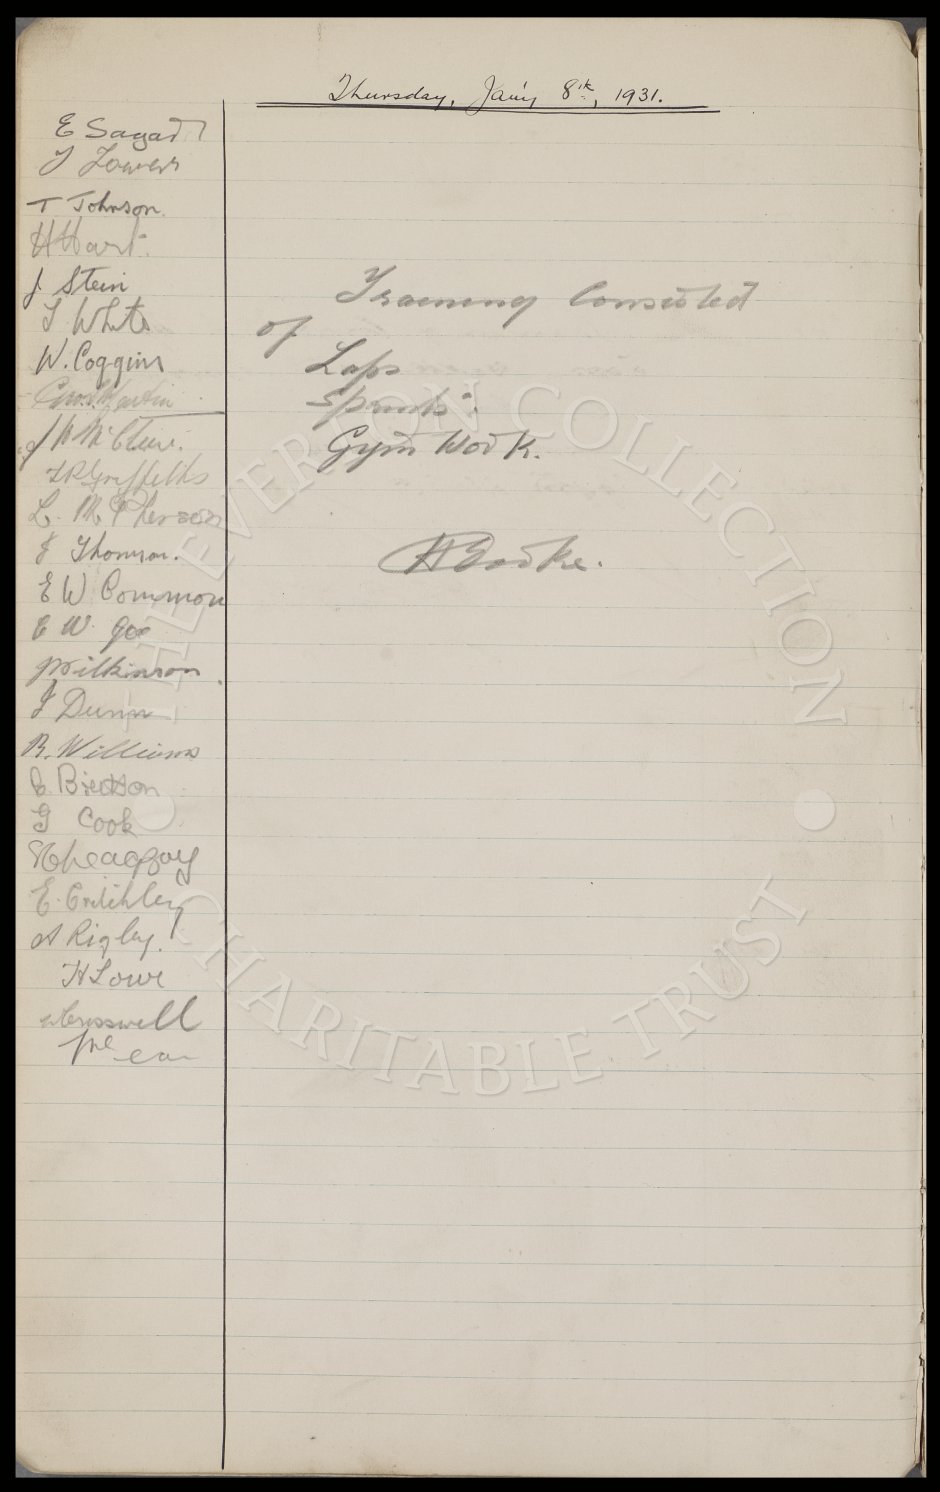 Thursday, Jan'y 8th, 1931.
E Sagar
J Towers
T Johnson.
H Hart.
J. Stein
T White
W. Coggins
Geo. Martin
J H McClure.
T P Griffiths
L. McPherson
J Thomson.
E W Common
E W Gee
J Wilkinson.
J Dunn
R. Williams
G Cook
E. Critchley
A Rigley.
H Lowe
W Cresswell
Training Consisted
of
Laps
Sprints.
Gym Work.
H Cooke.
THE EVERTON COLLECTION
CHARITABLE TRUST